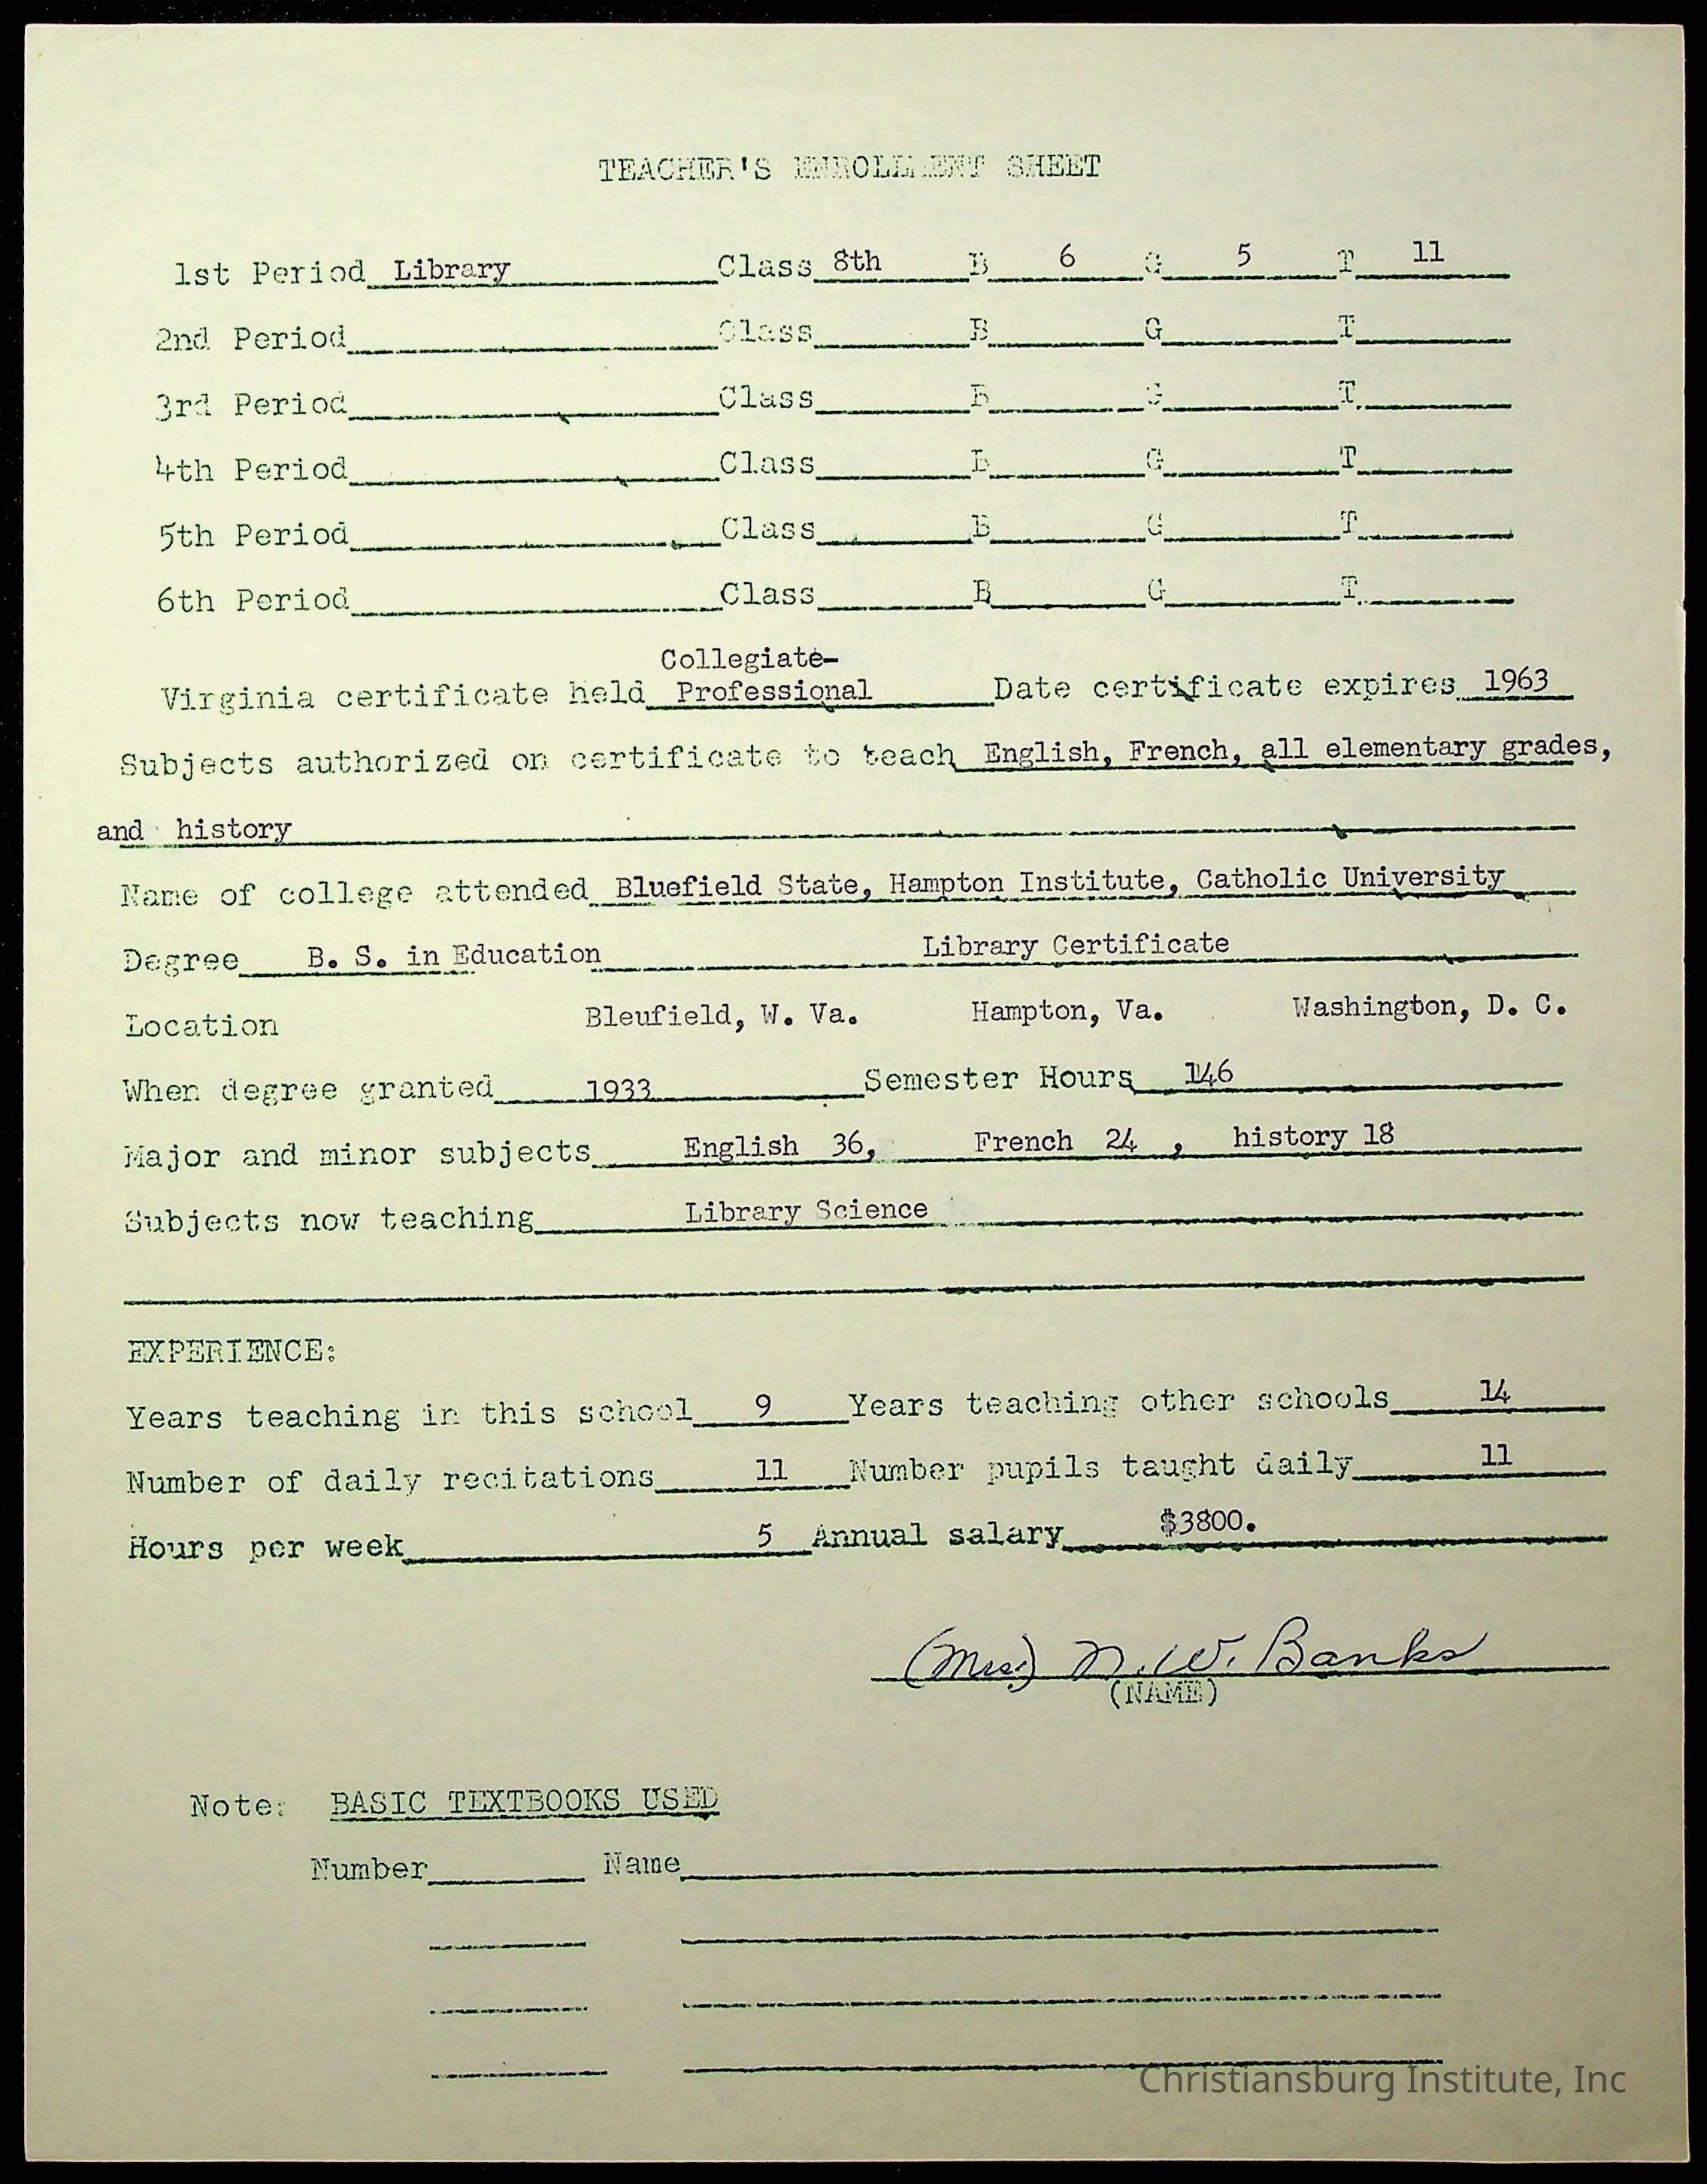 TEACHER'S ENROLLMENT SHEET
1st Period Library Class 8th B 6 G 5 T 11
2nd Period Class B G T
3rd Period Class B G T
4th Period Class B G T
5th Period Class B G T
6th Period Class B G T
Collegiate-
Virginia certificate held Professional Date certificate expires 1963
Subjects authorized on certificate to teach English, French, all elementary grades,
and history
Name of college attended Bluefield State, Hampton Institute, Catholic University
Degree B. S. in Education Library Certificate
Location Bleufield, W. Va. Hampton, Va. Washington, D. C.
When degree granted 1933 Semester Hours 146
Major and minor subjects English 36, French 24 , history 18
Subjects now teaching Library Science
EXPERIENCE:
Years teaching in this school 9 Years teaching other schools 14
Number of daily recitations 11 Number pupils taught daily 11
Hours per week 5 Annual salary $3800.
(Mrs.) N. W. Banks
(NAME)
Note: BASIC TEXTBOOKS USED
Number Name
Christiansburg Institute, Inc